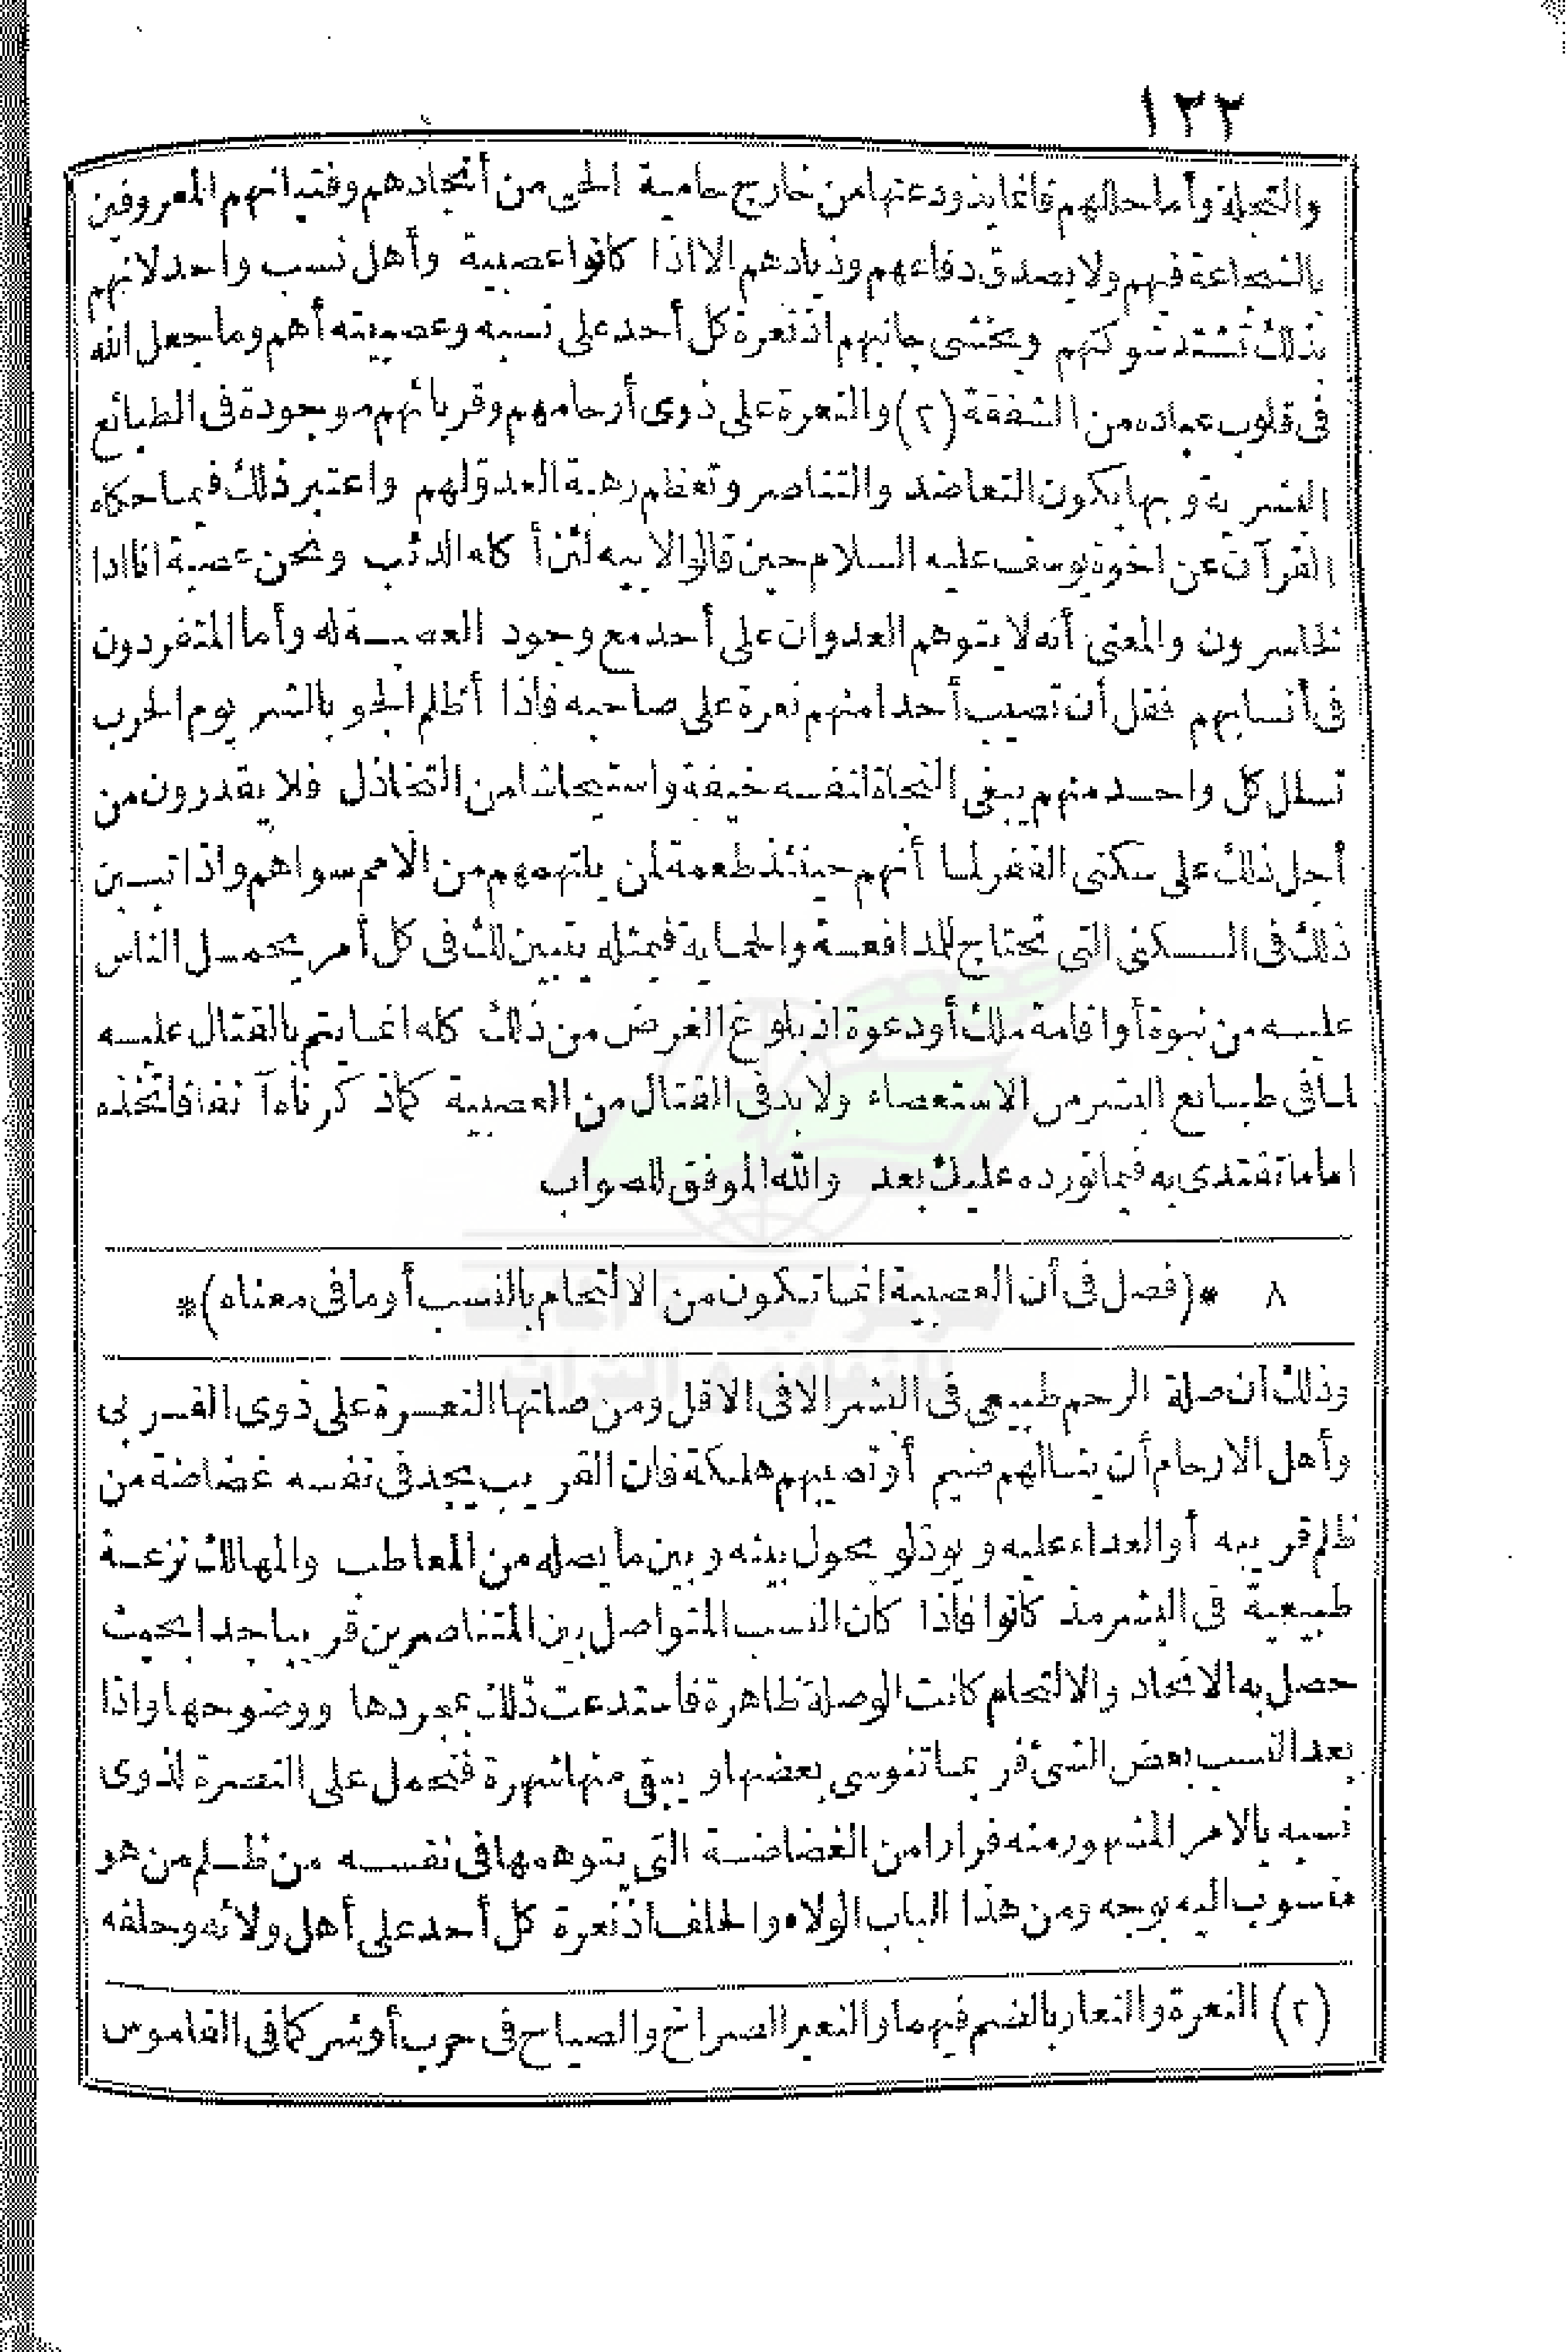 ١٢٢
والتجلة وأما حللهم فانما يذود عنها من خارج حامية الحي من أنجادهم وفتيانهم المعروفين
بالشجاعة فيهم ولا يصدق دفاعهم وذيادهم الا اذا كانوا عصبية وأهل نسب واحد لانهم
بذلك تشتد شوكتهم ويخشى جانبهم اذ نعرة كل أحد على نسبه وعصبيته أهم وما جعل الله
فى قلوب عباده من الشفقة (٢) والنعرة على ذوى أرحامهم وقربائهم موجودة فى الطبائع
البشرية وبها يكون التعاضد والتناصر وتعظم رهبة العدو لهم واعتبر ذلك فيما حكاه
القرآن عن اخوة يوسف عليه السلام حين قالوا لابيه لئن أكله الذئب ونحن عصبة انا اذا
لخاسرون والمعنى أنه لا يتوهم العدوان على أحد مع وجود العصبة له وأما المتفردون
فى أنسابهم فقل أن تصيب أحدا منهم نعرة على صاحبه فاذا أظلم الجو بالشر يوم الحرب
تسلل كل واحد منهم يبغى النجاة لنفسه خيفة واستيحاشا من التخاذل فلا يقدرون من
أجل ذلك على سكنى القفر لما أنهم حينئذ طعمة لمن يلتهمهم من الامم سواهم واذا تبين
ذلك فى السكنى التى تحتاج للمدافعة والحماية فبمثله يتبين لك فى كل أمر يحمل الناس
عليه من نبوة أو اقامة ملك أو دعوة اذ بلوغ الغرض من ذلك كله انما يتم بالقتال عليه
لما فى طبائع البشر من الاستعصاء ولا بد فى القتال من العصبية كما ذكرناه آنفا فاتخذه
اماما تقتدى به فيما نورده عليك بعد والله الموفق للصواب
٨ *(فصل فى أن العصبية انما تكون من الالتحام بالنسب أو ما فى معناه)*
وذلك أن صلة الرحم طبيعى فى البشر الا فى الاقل ومن صلتها النعرة على ذوى القربى
وأهل الارحام أن ينالهم ضيم أو تصيبهم هلكة فان القريب يجد فى نفسه غضاضة من
ظلم قريبه أو العداء عليه ويود لو يحول بينه وبين ما يصله من المعاطب والمهالك نزعة
طبيعية فى البشر مذ كانوا فاذا كان النسب المتواصل بين المتناصرين قريبا جدا بحيث
حصل به الاتحاد والالتحام كانت الوصلة ظاهرة فاستدعت ذلك بمجردها ووضوحها واذا
بعد النسب بعض الشئ فربما تنوسى بعضها ويبقى منها شهرة فتحمل على النصرة لذوى
نسبه بالامر المشهور منه فرارا من الغضاضة التى يتوهمها فى نفسه من ظلم من هو
منسوب اليه بوجه ومن هذا الباب الولاء والحلف اذ نعرة كل أحد على أهل ولائه وحلفه
(٢) النعرة والنعار بالضم فيهما والنعير الصراخ والصياح فى حرب أو شر كما فى القاموس